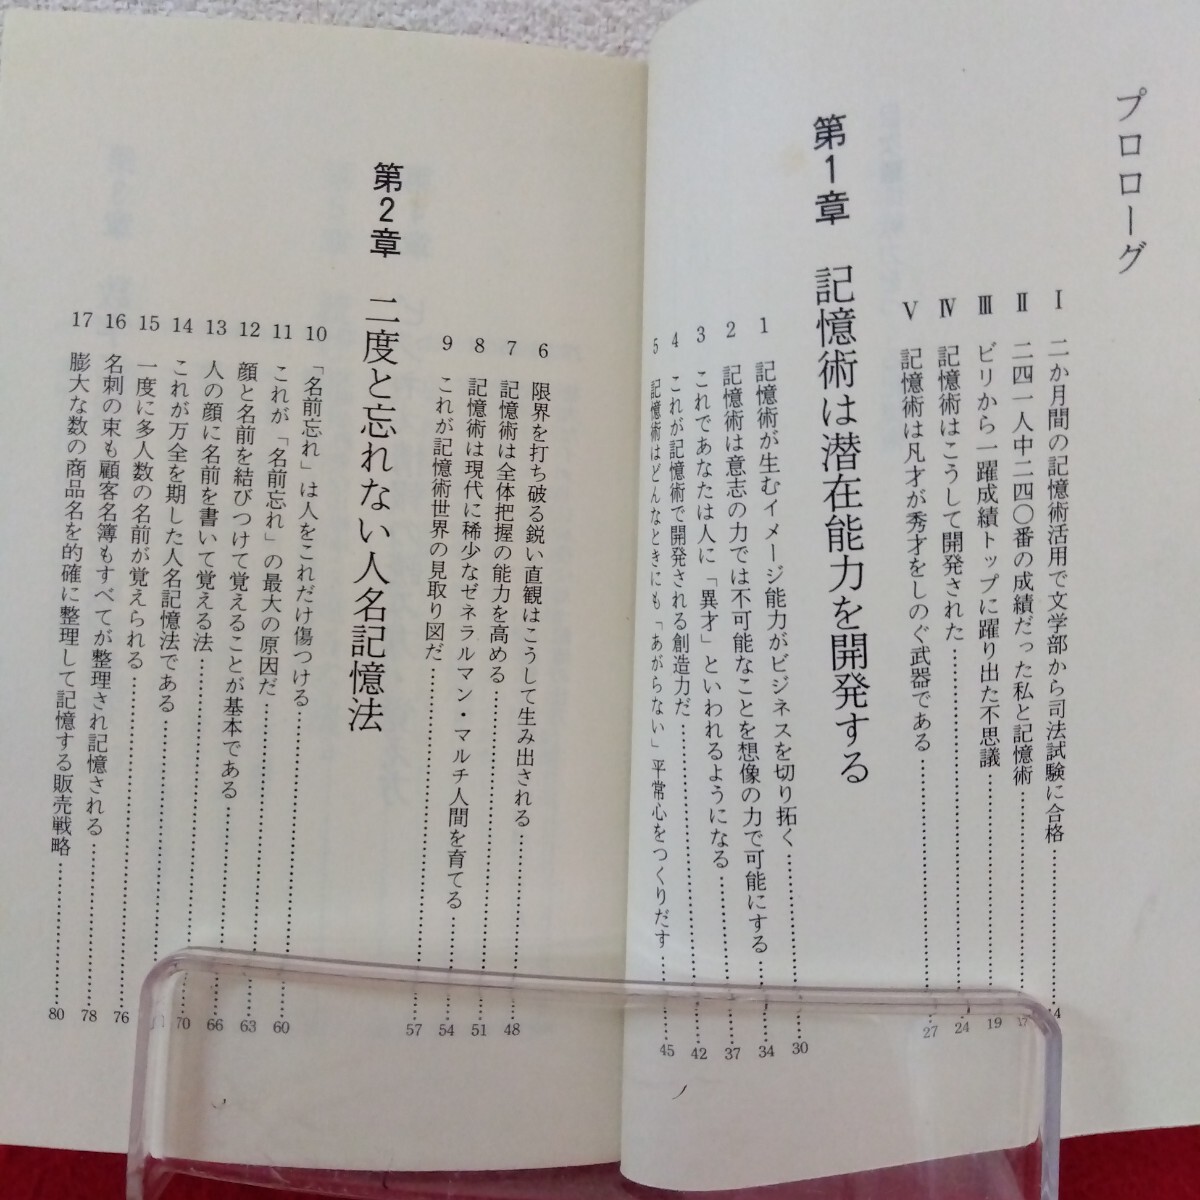 プロローグ
Ⅰ 二か月間の記憶術活用で文学部から司法試験に合格
Ⅱ 二四一人中二四〇番の成績だった私と記憶術
Ⅲ ビリから一躍成績トップに躍り出た不思議 19
Ⅳ 記憶術はこうして開発された 24
Ⅴ 記憶術は凡才が秀才をしのぐ武器である 27
第1章 記憶術は潜在能力を開発する
1 記憶術が生むイメージ能力がビジネスを切り拓く 30
2 記憶術は意志の力では不可能なことを想像の力で可能にする 34
3 これであなたは人に「異才」といわれるようになる 37
4 これが記憶術で開発される創造力だ 42
5 記憶術はどんなときにも「あがらない」平常心をつくりだす 45
6 限界を打ち破る鋭い直観はこうして生み出される 48
7 記憶術は全体把握の能力を高める 51
8 記憶術は現代に稀少なゼネラルマン・マルチ人間を育てる 54
9 これが記憶術世界の見取り図だ 57
第2章 二度と忘れない人名記憶法
10 「名前忘れ」は人をこれだけ傷つける 60
11 これが「名前忘れ」の最大の原因だ 63
12 顔と名前を結びつけて覚えることが基本である 66
13 人の顔に名前を書いて覚える法 70
14 これが万全を期した人名記憶法である
15 一度に多人数の名前が覚えられる 76
16 名刺の束も顧客名簿もすべてが整理され記憶される 78
17 膨大な数の商品名を的確に整理して記憶する販売戦略 80